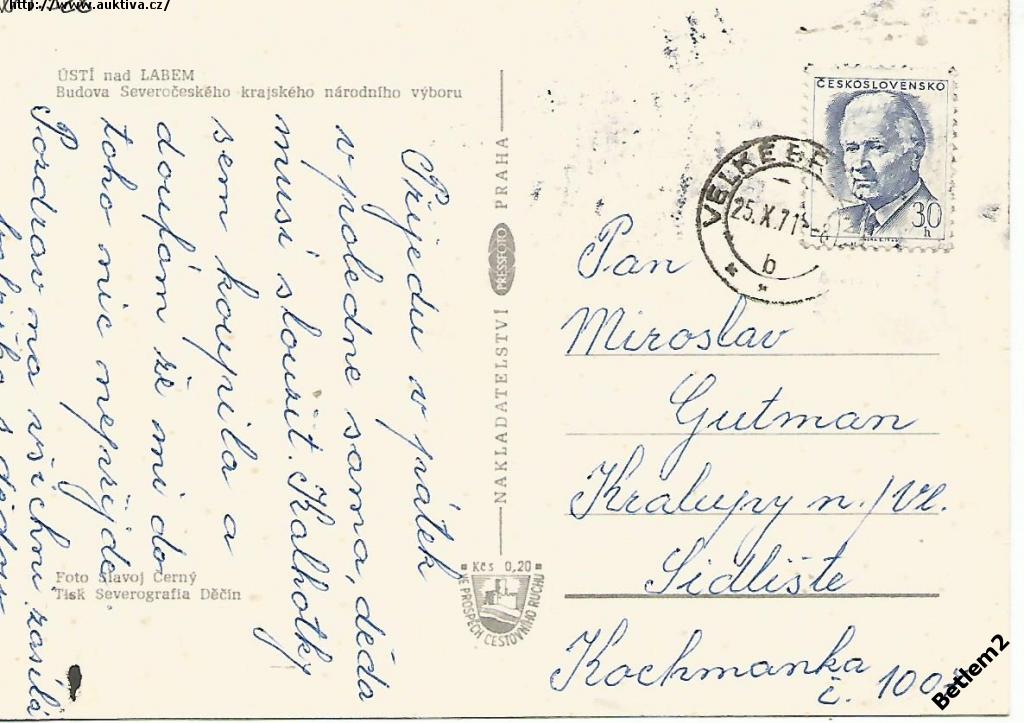 http://www.auktiva.cz/
ÚSTÍ nad LABEM
Budova Severočeského krajského národního výboru
Přijedu v pátek
v poledne sama, děda
musí sloužit. Kalhotky
sem koupila a
doufám že mi do
toho nic nepřijde.
Pozdrav na všechny zasílá
babička s dědou
Foto Slavoj Černý
Tisk Severografia Děčín
NAKLADATELSTVÍ PRESSFOTO PRAHA
Kčs 0,20
VE PROSPĚCH CESTOVNÍHO RUCHU
ČESKOSLOVENSKO
30 h
VELKÉ BŘ
25.X.71
b
Pan
Miroslav
Gutman
Kralupy n./Vl.
Sidliště
Kochmanka
č. 100
Betlem2